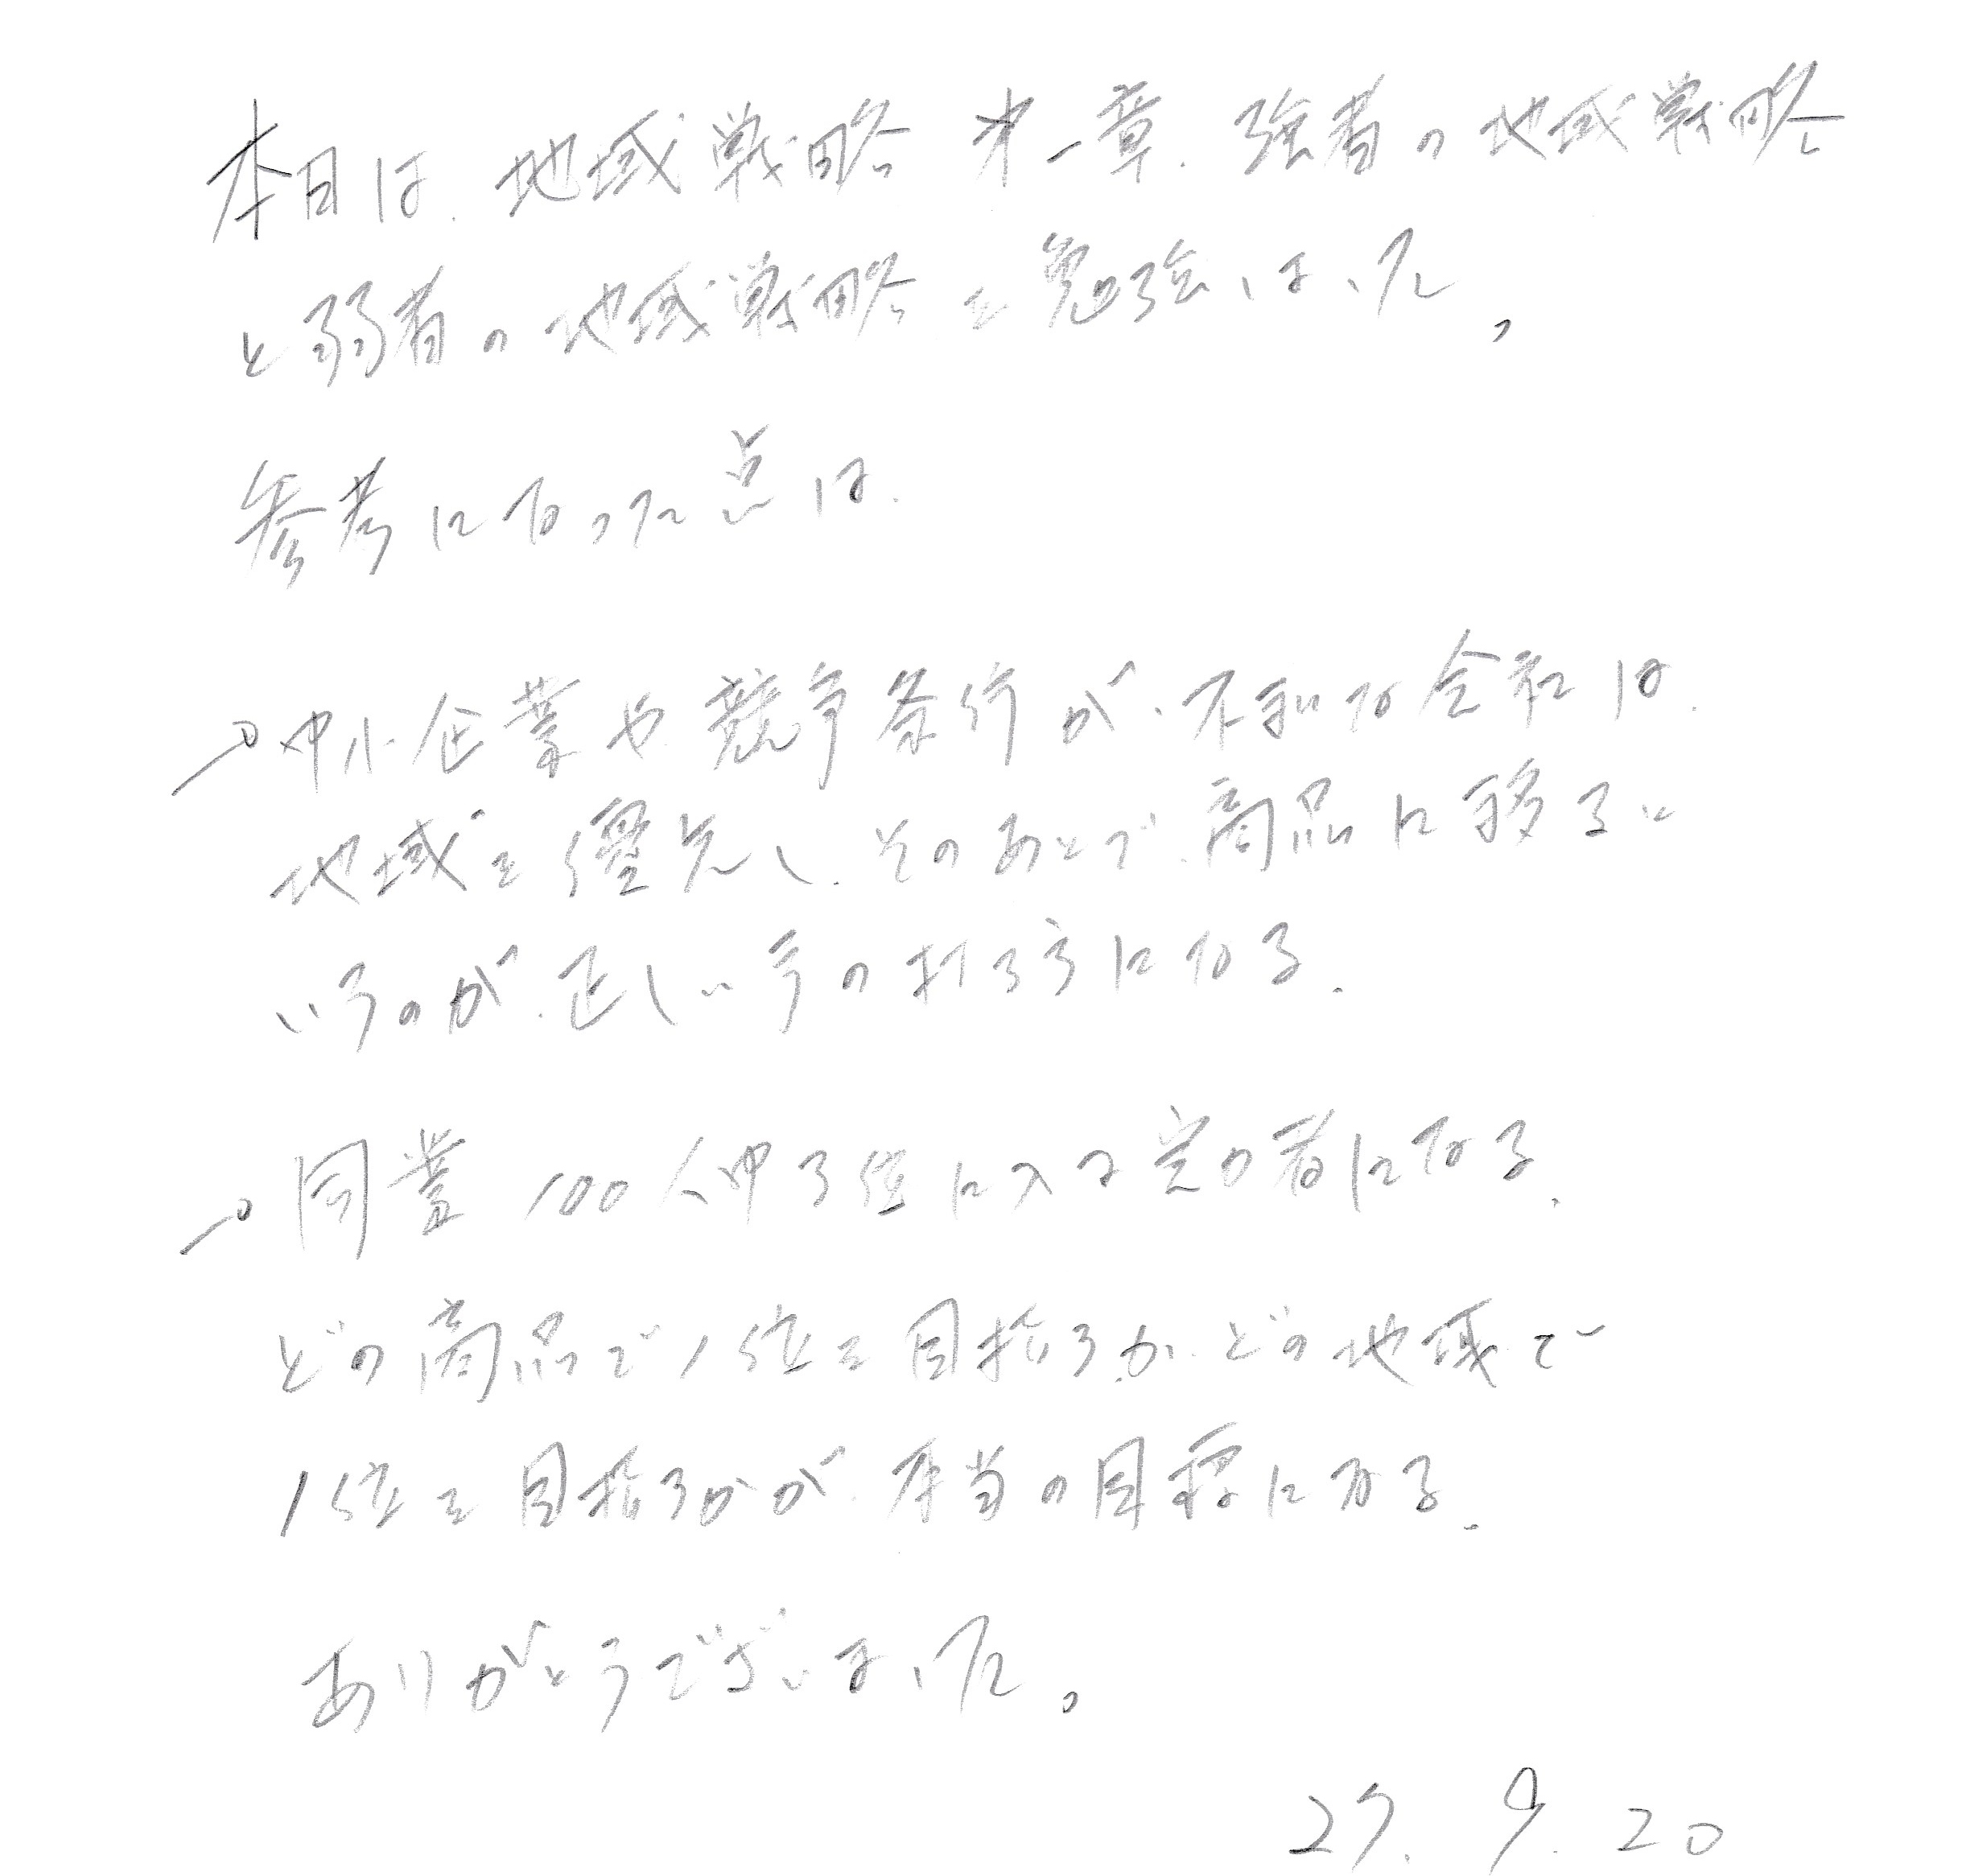 本日は、地域戦略 第一章、強者の地域戦略
と弱者の地域戦略を勉強しました。
参考になった点は、
→中小企業や競争条件が、不利な会社は、
地域を優先し、そのあとで、商品に移ると
いうのが、正しい手の打ち方になる。
→同業100人中3位に入る実力者になる。
どの商品で1位を目指すか、どの地域で
1位を目指すかが、本当の目標になる。
ありがとうございました。
27. 9. 20